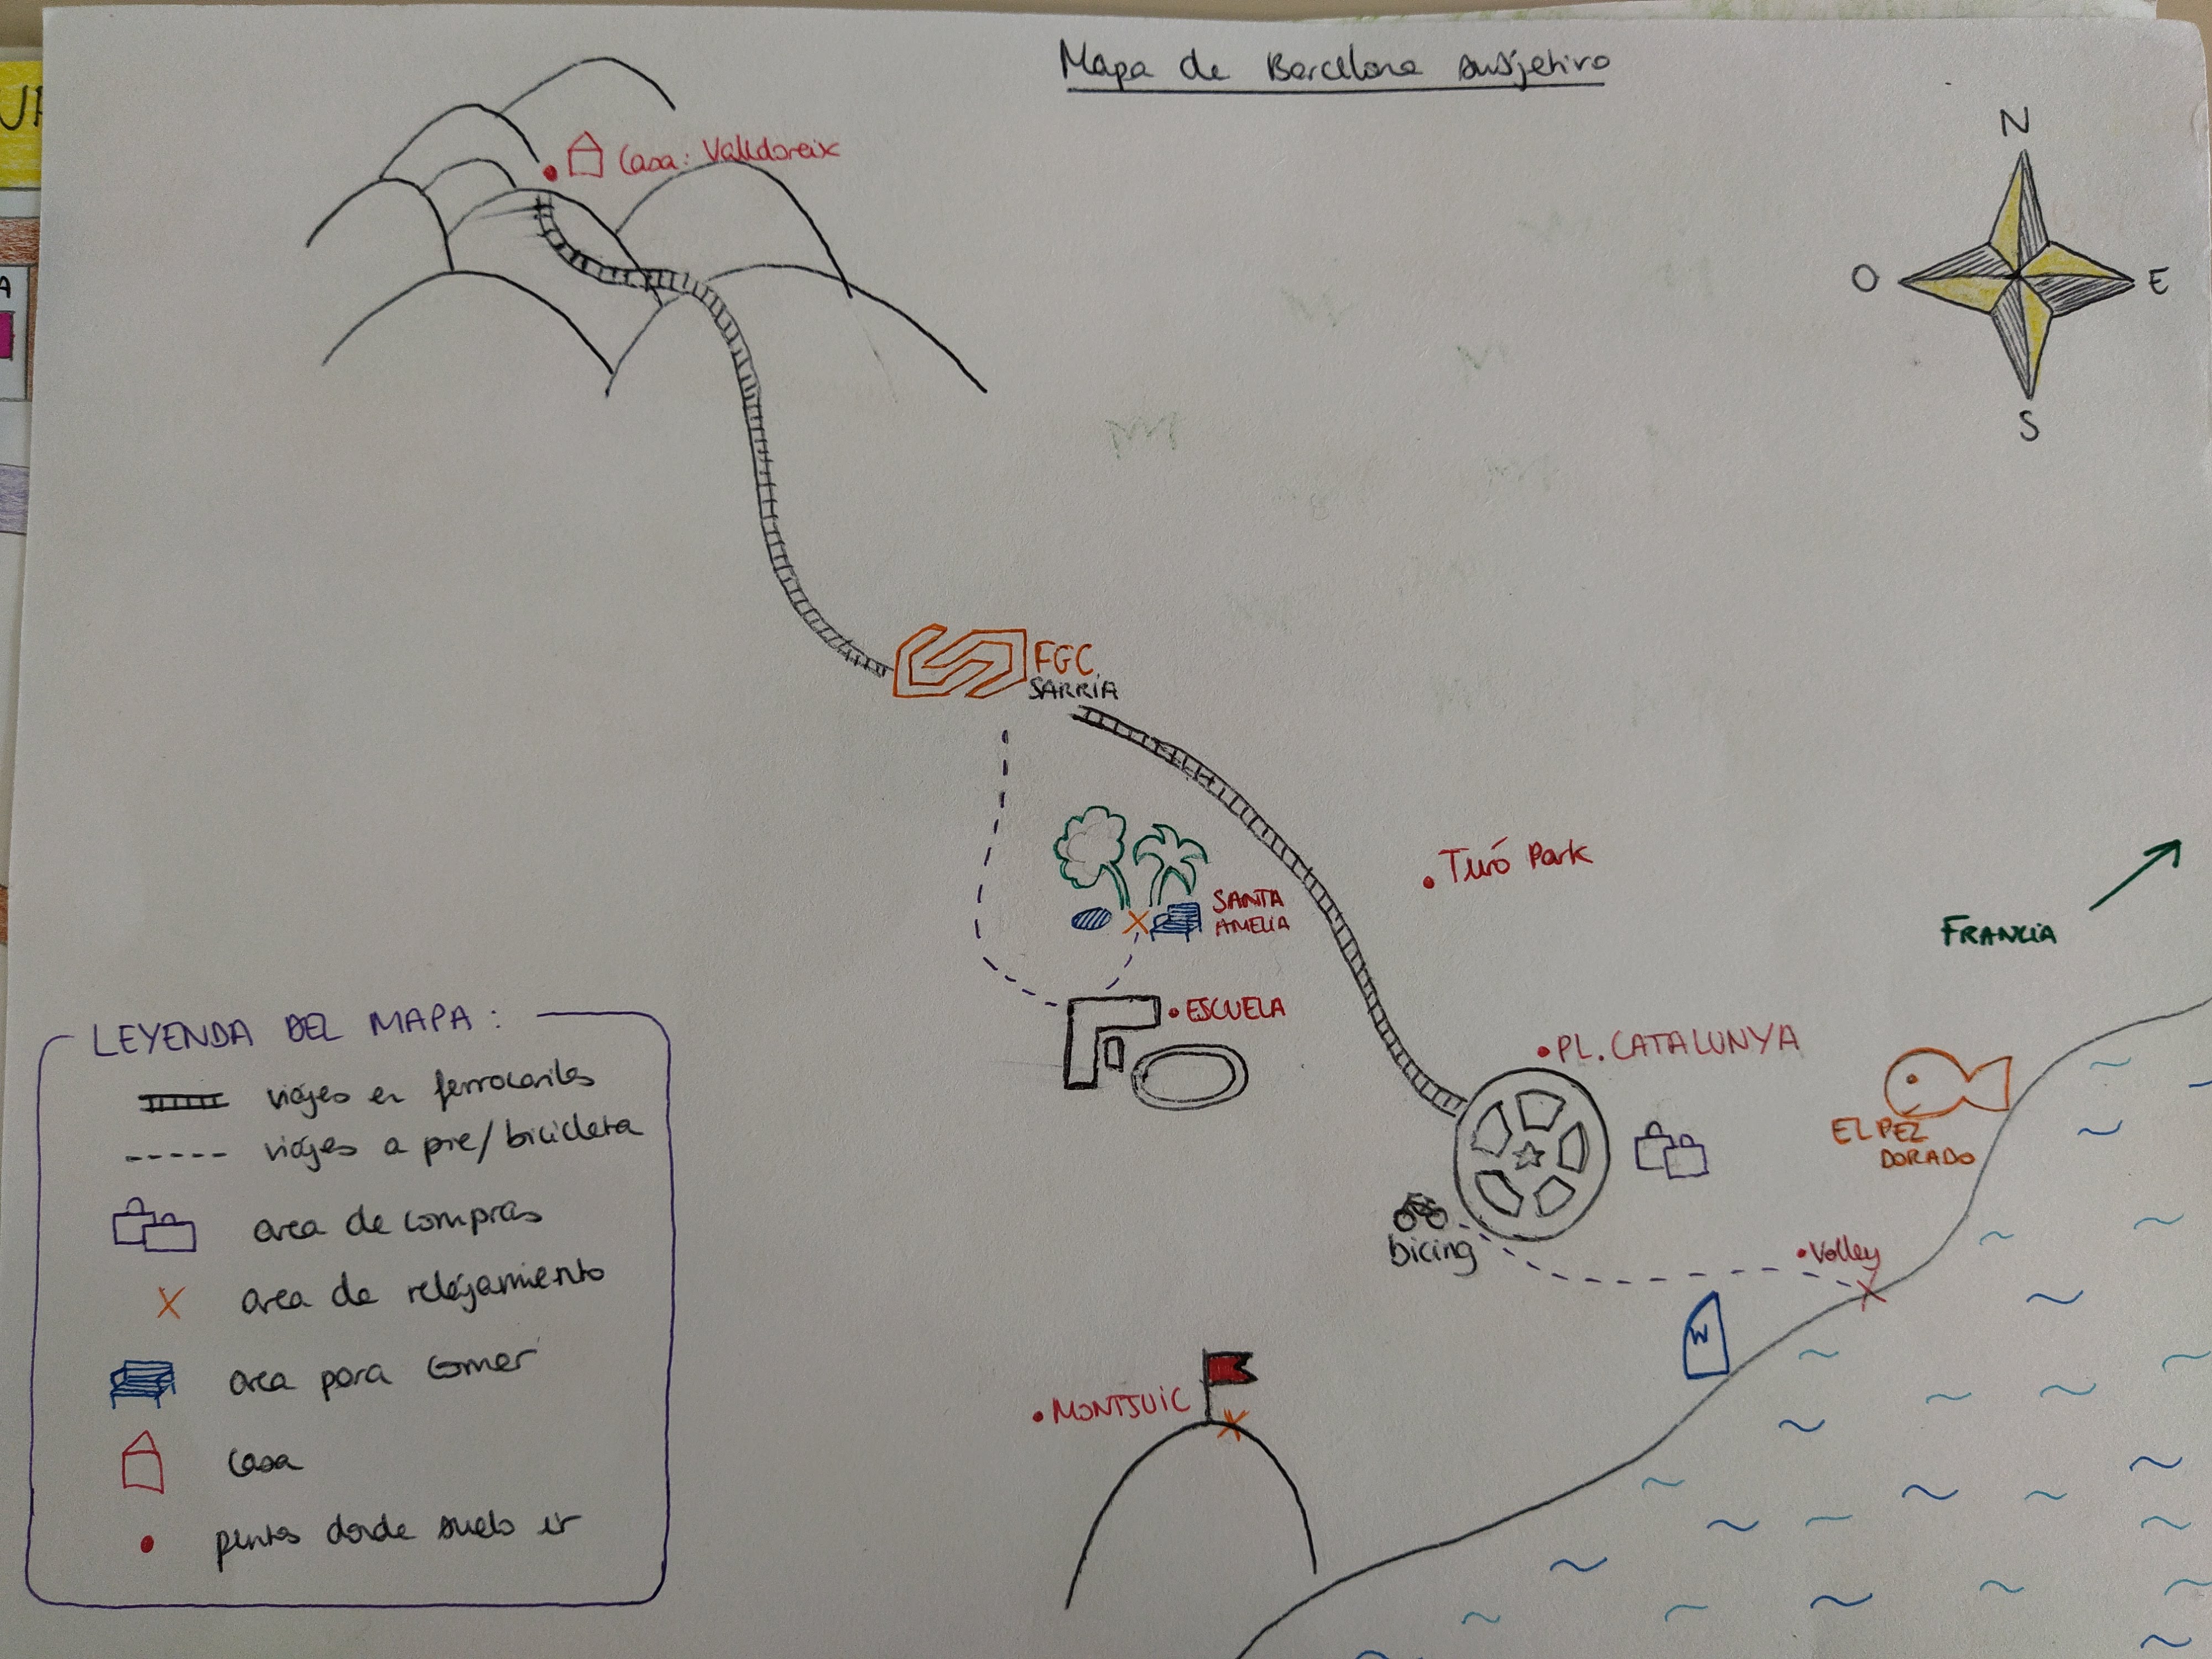 Mapa de Barcelona subjetivo
N
O
E
S
Casa: Valldoreix
FGC
SARRÍA
SANTA
AMELIA
Turó Park
FRANCIA
ESCUELA
PL. CATALUNYA
EL PEZ
DORADO
bicing
Volley
W
MONTJUIC
LEYENDA DEL MAPA:
viajes en ferrocariles
viajes a pie/bicicleta
area de compras
area de relajamiento
area para comer
casa
puntos donde suelo ir